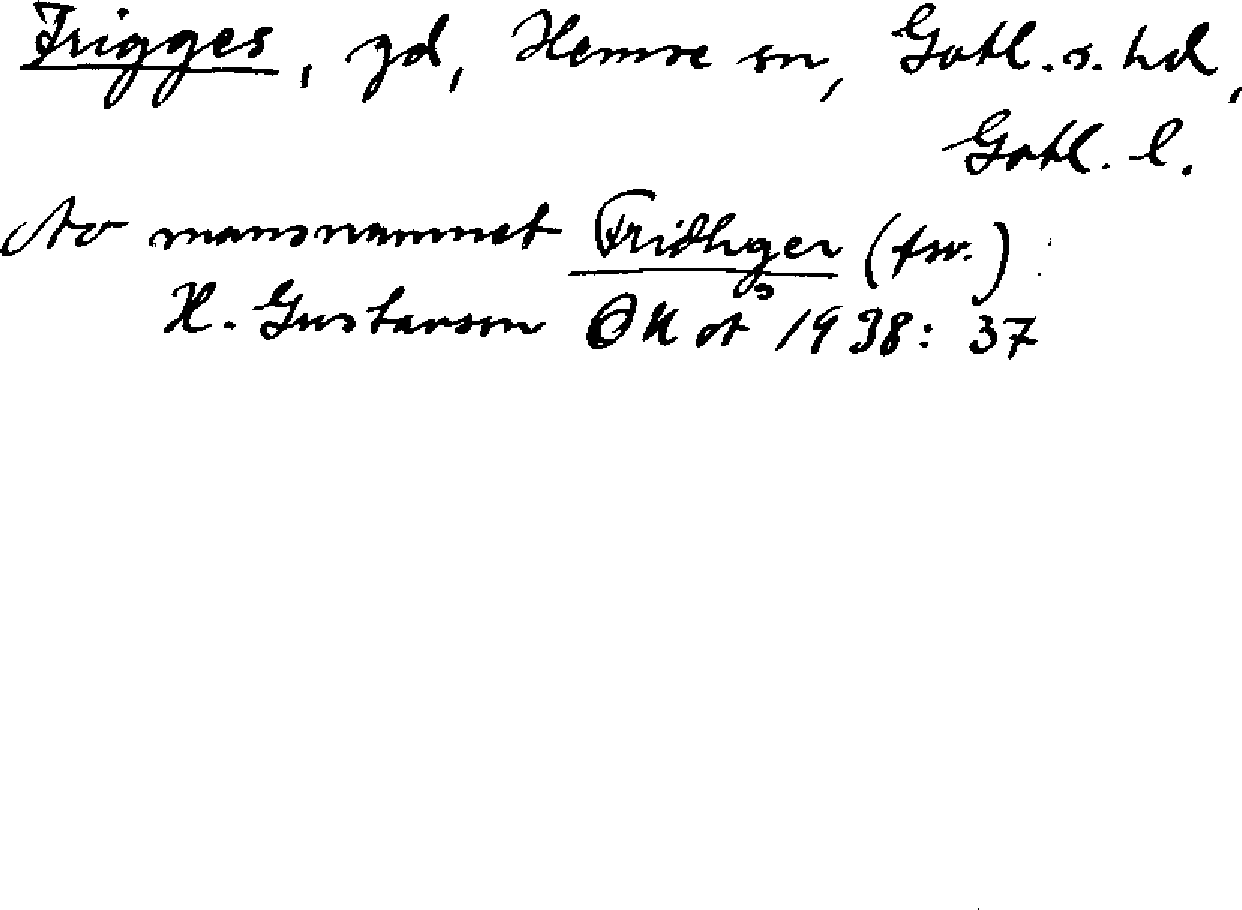 Frigges, gd, Hemse sn, Gotl. s. hd,
Gotl. l.
Av mansnamnet Fridhger (fsv.)
H. Gustavson OUÅ 1938: 37